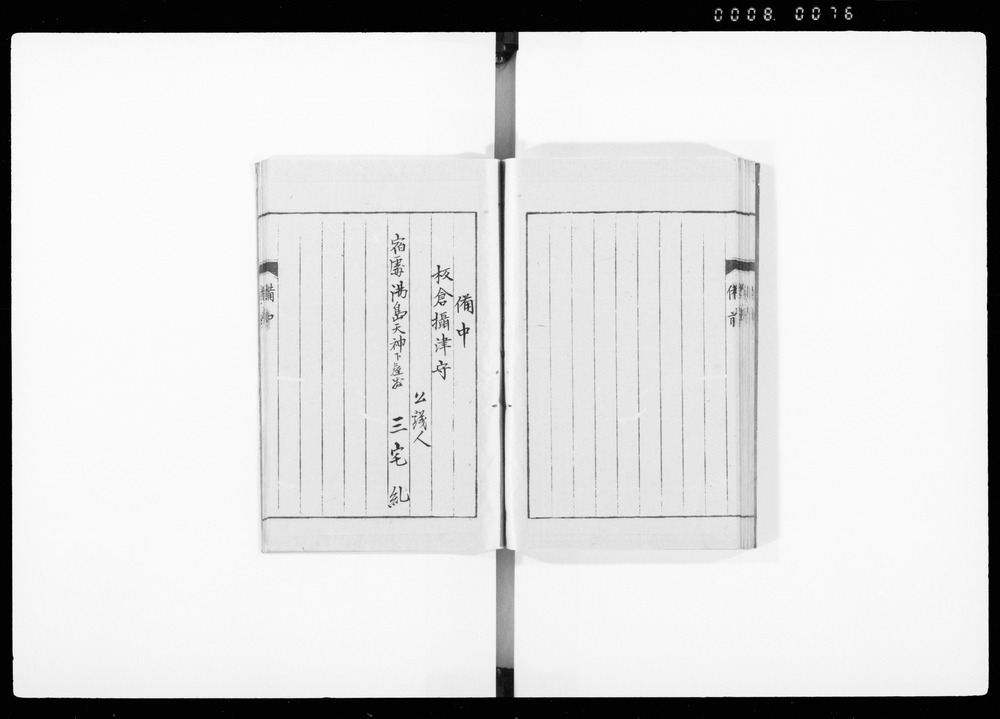 0008. 0076
備前
備中
板倉攝津守
公議人
宿處湯島天神下屋敷 三宅糺
備中